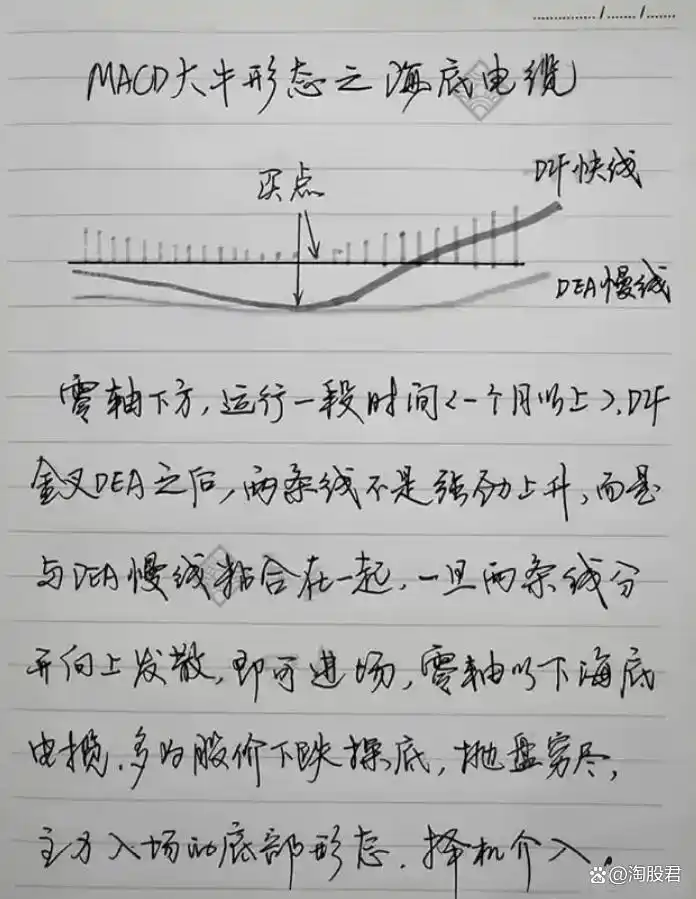 MACD大牛形态之海底电缆
买点
DIF快线
DEA慢线
零轴下方,运行一段时间<一个月以上>,DIF
金叉DEA之后,两条线不是强劲上升,而是
与DEA慢线粘合在一起,一旦两条线分
开向上发散,即可进场,零轴以下海底
电揽.多为股价下跌探底,抛盘穷尽,
主力入场的底部形态.择机介入.
@淘股君